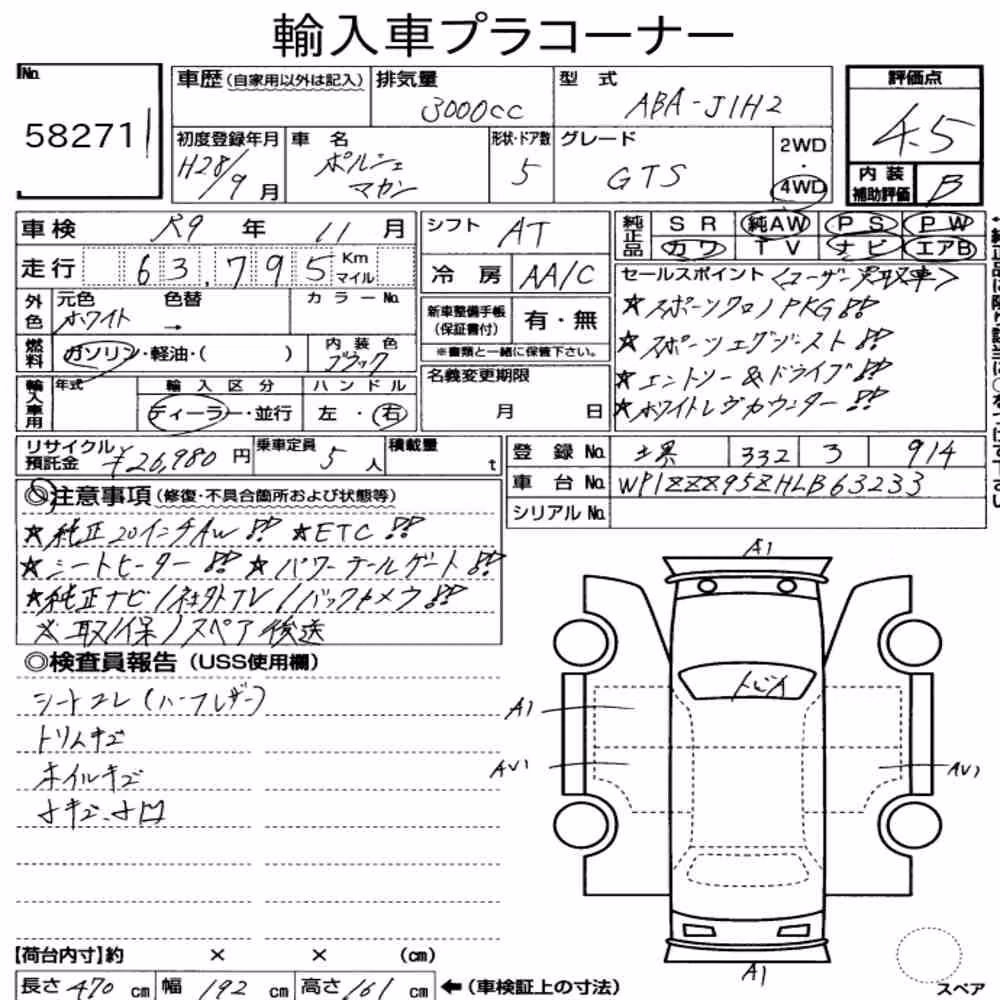 輸入車プラコーナー
No. 58271
車歴(自家用以外は記入)
排気量 3000cc
型式 ABA-J1H2
評価点 4.5
内装補助評価 B
初度登録年月 H28/9月
車名 ポルシェ マカン
形状・ドア数 5
グレード GTS
2WD・4WD
車検 R9年 11月
走行 63,795 Km マイル
シフト AT
冷房 AA/C
純正品 SR 純AW PS PW
カワ TV ナビ エアB
外色 元色 ホワイト 色替 → カラーNo.
燃料 ガソリン・軽油・( ) 内装色 ブラック
新車整備手帳(保証書付) 有・無
※書類と一緒に保管下さい。
輸入車用 年式 輸入区分 ディーラー・並行 ハンドル 左・右
名義変更期限 月 日
セールスポイント <ユーザー買取車>
★スポーツクロノPKG!!
★スポーツエグゾースト!!
★エントリー&ドライブ!!
★ホワイトレヴカウンター!!
リサイクル預託金 ¥26,980円
乗車定員 5人
積載量 t
登録No. 堺 332 ヲ 914
車台No. WP1ZZZ95ZHLB63233
シリアルNo.
◎注意事項(修復・不具合箇所および状態等)
★純正20インチAW!! ★ETC!!
★シートヒーター!! ★パワーテールゲート!!
★純正ナビ/社外TV/バックカメラ!!
※取/保/スペア後送
◎検査員報告(USS使用欄)
シートコレ(ハーフレザー)
トリムキズ
ホイルキズ
小キズ、小凹
A1
トビイ
A1
AU1
AU1
A1
スペア
【荷台内寸】約 × × (cm)
長さ 470 cm 幅 192 cm 高さ 161 cm ←(車検証上の寸法)